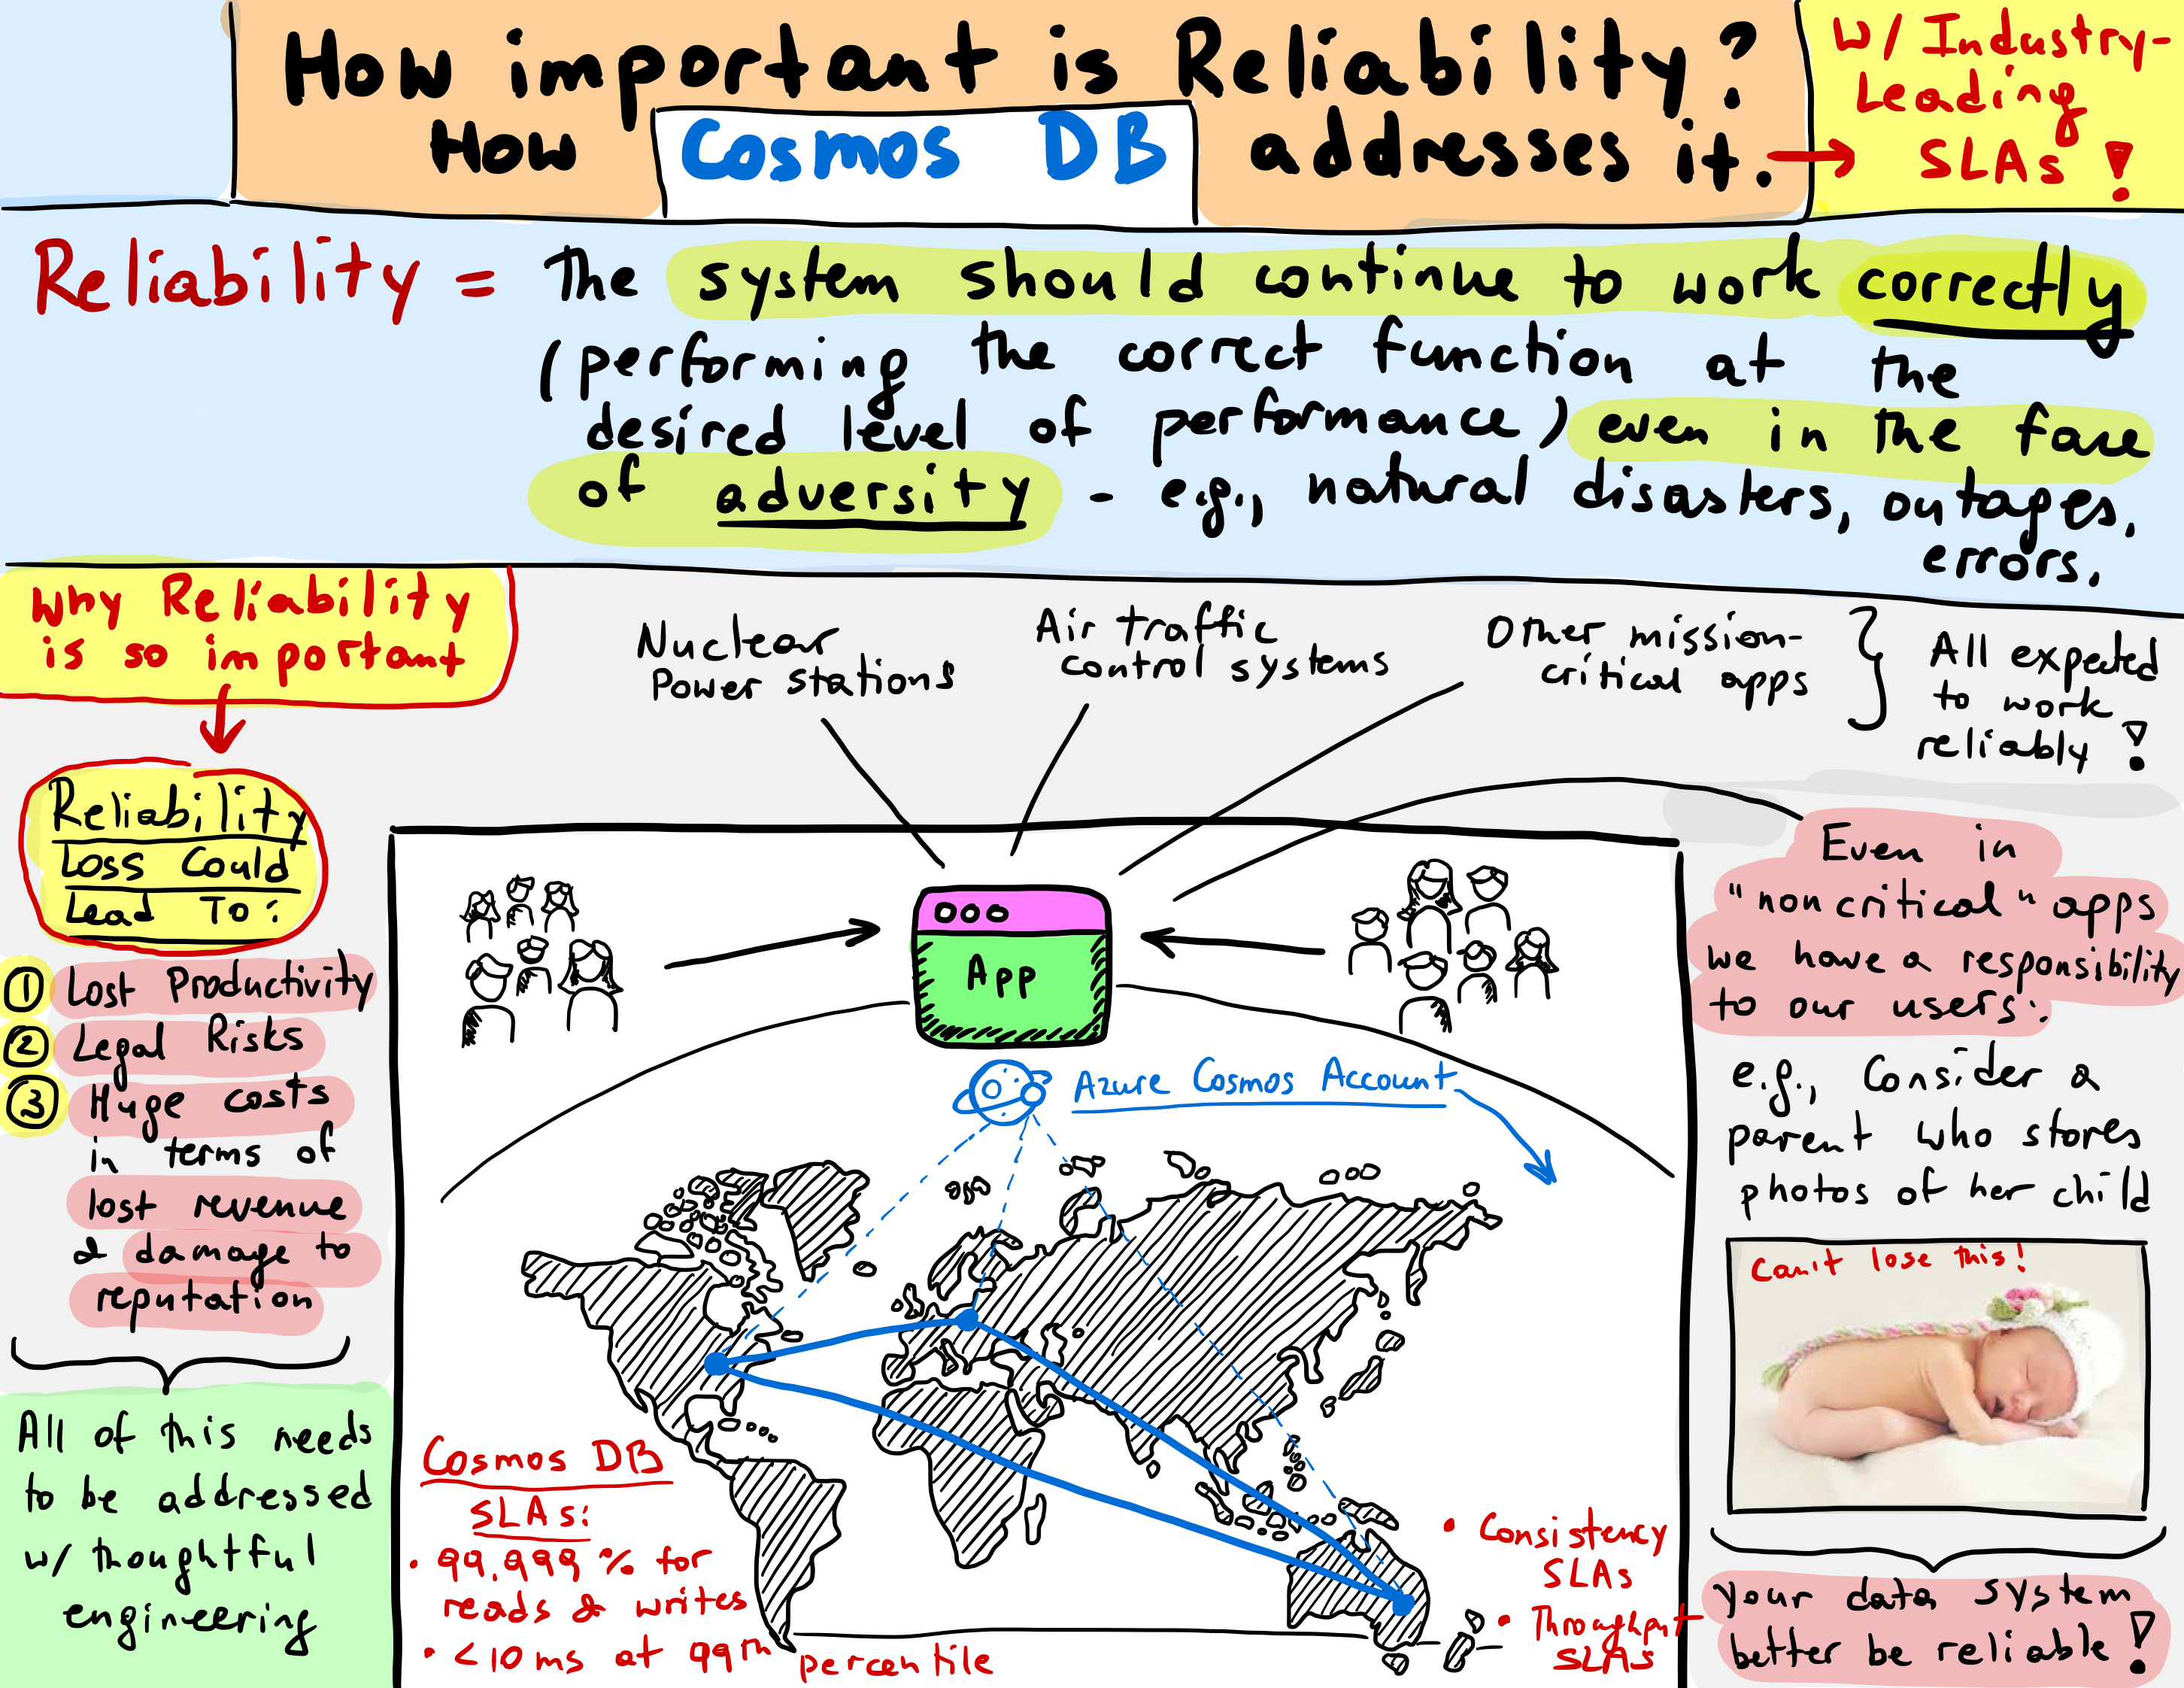 How important is Reliability?
How Cosmos DB addresses it. →
W/ Industry-
Leading
SLAs!
Reliability = The system should continue to work correctly
(performing the correct function at the
desired level of performance) even in the face
of adversity - e.g., natural disasters, outages,
errors.
Why Reliability
is so important
Reliability
Loss Could
Lead To:
① Lost Productivity
② Legal Risks
③ Huge costs
in terms of
lost revenue
& damage to
reputation
All of this needs
to be addressed
w/ thoughtful
engineering
Nuclear
Power stations
Air traffic
control systems
Other mission-
critical apps
All expected
to work
reliably!
App
Azure Cosmos Account
Cosmos DB
SLAs:
• 99.999 % for
reads & writes
• <10 ms at 99th percentile
• Consistency
SLAs
• Throughput
SLAs
Even in
"non critical" apps
we have a responsibility
to our users:
e.g., Consider a
parent who stores
photos of her child
Can't lose this!
your data system
better be reliable!